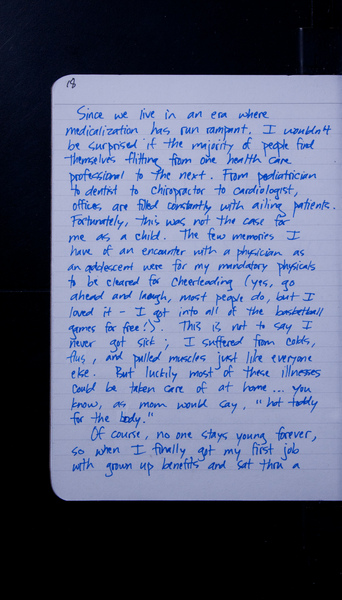 18
Since we live in an era where
medicalization has run rampant, I wouldn't
be surprised if the majority of people find
themselves flitting from one health care
professional to the next. From pediatrician
to dentist to chiropractor to cardiologist,
offices are filled constantly with ailing patients.
Fortunately, this was not the case for
me as a child. The few memories I
have of an encounter with a physician as
an adolescent were for my mandatory physicals
to be cleared for cheerleading (yes, go
ahead and laugh, most people do, but I
loved it - I got into all of the basketball
games for free!). This is not to say I
never got sick; I suffered from colds,
flus, and pulled muscles just like everyone
else. But luckily most of these illnesses
could be taken care of at home... you
know, as mom would say, "hot toddy
for the body."
Of course, no one stays young forever,
so when I finally got my first job
with grown up benefits and sat thru a